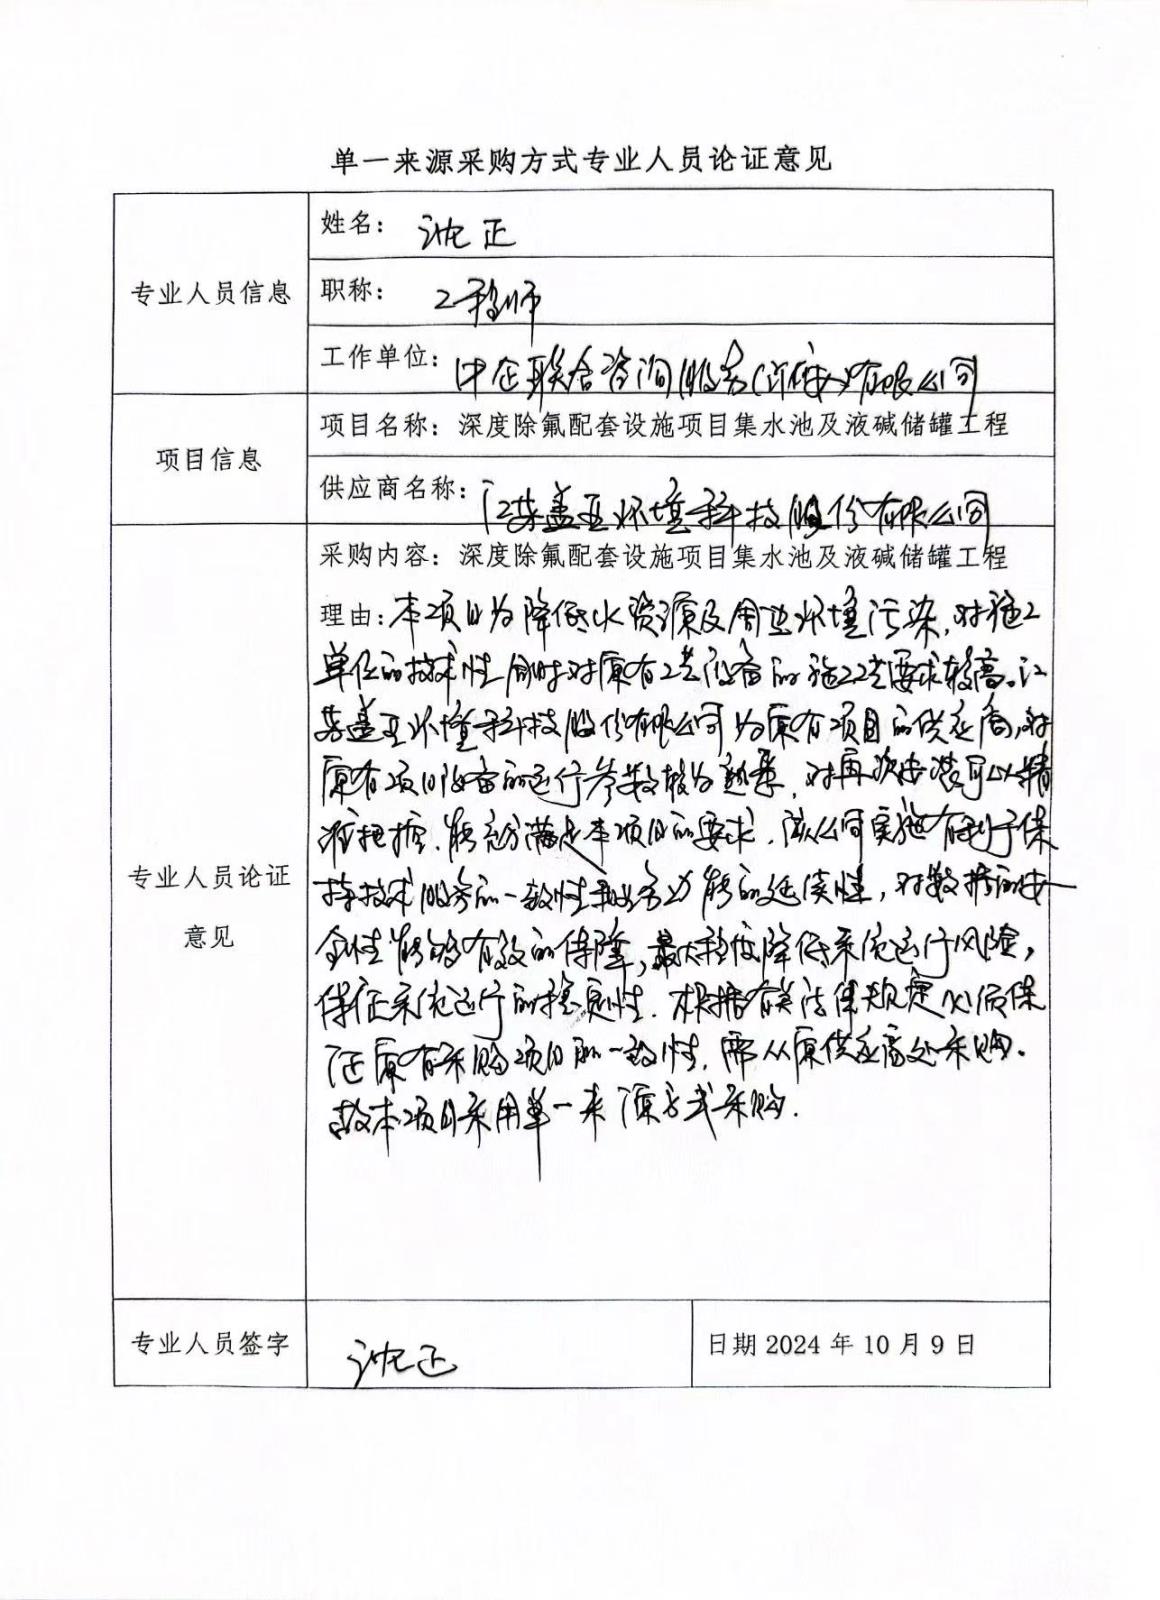 单一来源采购方式专业人员论证意见
专业人员信息
姓名： 沈正
职称： 工程师
工作单位： 中企联合咨询服务()有限公司
项目信息
项目名称：深度除氟配套设施项目集水池及液碱储罐工程
供应商名称：江苏盖亚环境科技股份有限公司
专业人员论证
意见
采购内容：深度除氟配套设施项目集水池及液碱储罐工程
理由：本项目为降低水资源及周边环境污染，对施工
单位的技术性同时对原有工艺设备的施工工艺要求较高。江
苏盖亚环境科技股份有限公司为原有项目的供应商，对
原有项目设备的运行参数较为熟悉，对再次安装可以精
准把握，能充分满足本项目的要求，该公司实施有利于保
持技术服务的一致性和业务功能的延续性，对数据的安
全性能够有效的保障，最大程度降低系统运行风险，
保证系统运行的稳定性。根据有关法律规定必须保
证原有采购项目的一致性，需从原供应商处采购。
故本项目采用单一来源方式采购。
专业人员签字
沈正
日期 2024 年 10 月 9 日